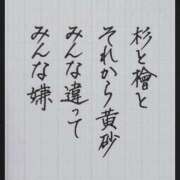 杉と檜と
それから黄砂
みんな違って
みんな嫌